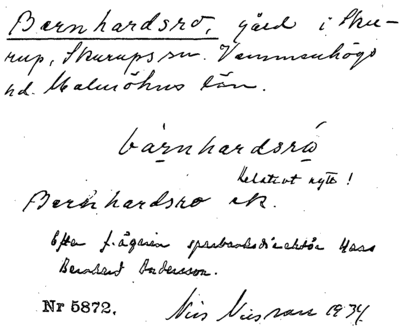 Bernhardsro, gård i Sku-
rup, Skurups sn. Vemmenhögs
hd. Malmöhus län.
bärnhardsró
Relativt nytt!
Bernhardsro ek.
Efter f. ägaren sparbanksdirektör Hans
Bernhard Andersson.
Nr 5872.
Nils Nilsson 1934